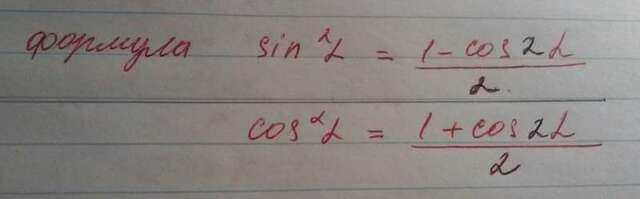 формула sin²α = (1 - cos2α)/2
cos²α = (1 + cos2α)/2